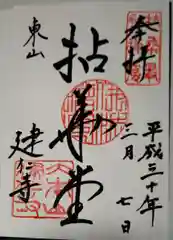 奉拝
平成三十年
三月七日
拈華堂
東山
建仁寺